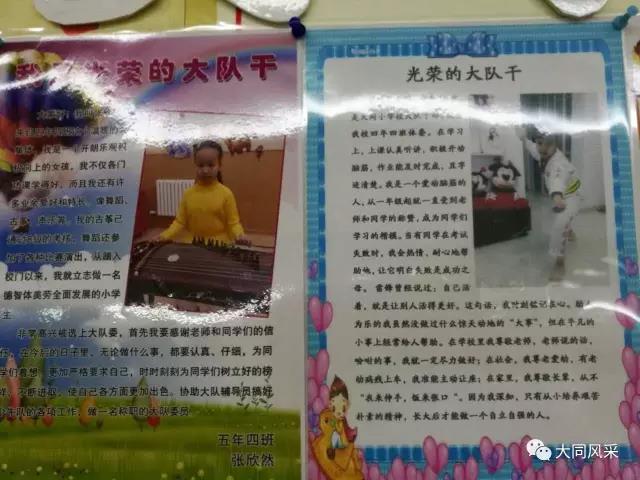 光荣的大队干
体，我是一个开朗乐观积
向上的女孩，我不仅各门
课学得好，而且我还有许
多业余爱好和特长，像舞蹈、
古筝、声乐等，我的古筝已
舞蹈还参
加了各种比赛演出，从踏入
校门以来，我就立志做一名
德智体美劳全面发展的小学
生
非常高兴被选上大队委，首先我要感谢老师和同学们的信
任，在今后的日子里，无论做什么事，都要认真、仔细，为同
学们着想，更加严格要求自己，时时刻刻为同学们树立好的榜
样，不断进取，使自己各方面更加出色，协助大队辅导员搞好
少年队的各项工作，做一名称职的大队委员
五年四班
张欣然
光荣的大队干
是大同小学校大队干部
我校四年四班体委。在学习
上，上课认真听讲，积极开动
脑筋，作业能及时完成，且字
迹清楚。我是一个爱动脑筋的
人，从一年级起就一直受到老
师和同学的称赞，成为同学们
学习的楷模。当有同学在考试
失败时，我会热情、耐心地帮
助他，让它明白失败是成功之
母。雷锋曾经说过：自己活
着，就是让别人活得更好。这句话，我时刻铭记在心。助人
为乐的我虽然没做过什么惊天动地的“大事”，但在平凡的
小事上经常给人帮助。在学校里我尊敬老师，老师说的话，
吩咐的事，我就一定尽力做好；在社会，我尊老爱幼，有老
幼病残上车，我准能主动让座；在家里，我尊敬长辈，从不
“衣来伸手，饭来张口”。因为我深知，只有从小培养艰苦
朴素的精神，长大后才能做一个自立自强的人。
大同风采